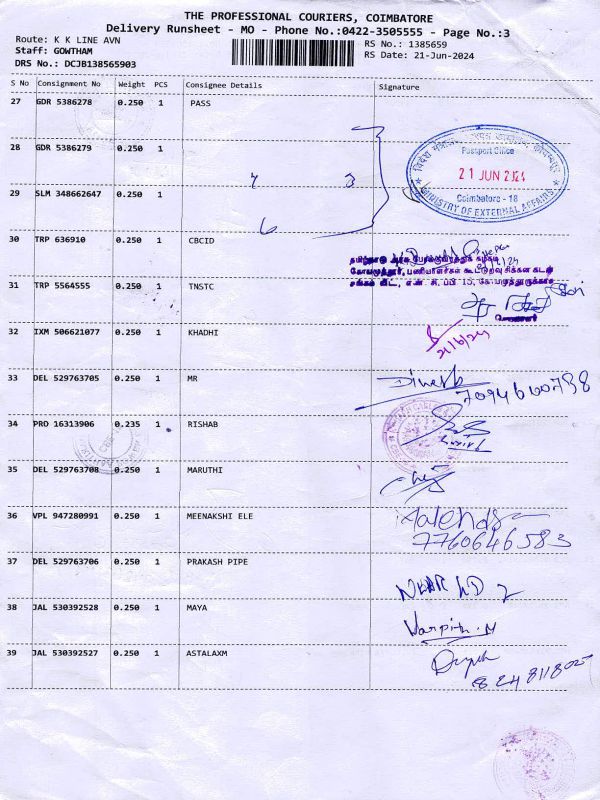 THE PROFESSIONAL COURIERS, COIMBATORE
Delivery Runsheet - MO - Phone No.:0422-3505555 - Page No.:3
Route: K K LINE AVN
Staff: GOWTHAM
DRS No.: DCJB138565903
RS No.: 1385659
RS Date: 21-Jun-2024
S No Consignment No Weight PCS Consignee Details Signature
27 GDR 5386278 0.250 1 PASS
28 GDR 5386279 0.250 1
Passport Office
21 JUN 2024
Coimbatore - 18
MINISTRY OF EXTERNAL AFFAIRS
29 SLM 348662647 0.250 1
6
30 TRP 636910 0.250 1 CBCID
31 TRP 5564555 0.250 1 TNSTC
32 IXM 506621077 0.250 1 KHADHI
21/6/24
33 DEL 529763705 0.250 1 MR
Dinesh
34 PRO 16313906 0.235 1 RISHAB
35 DEL 529763708 0.250 1 MARUTHI
36 VPL 947280991 0.250 1 MEENAKSHI ELE
7760646583
37 DEL 529763706 0.250 1 PRAKASH PIPE
38 JAL 530392528 0.250 1 MAYA
39 JAL 530392527 0.250 1 ASTALAXM